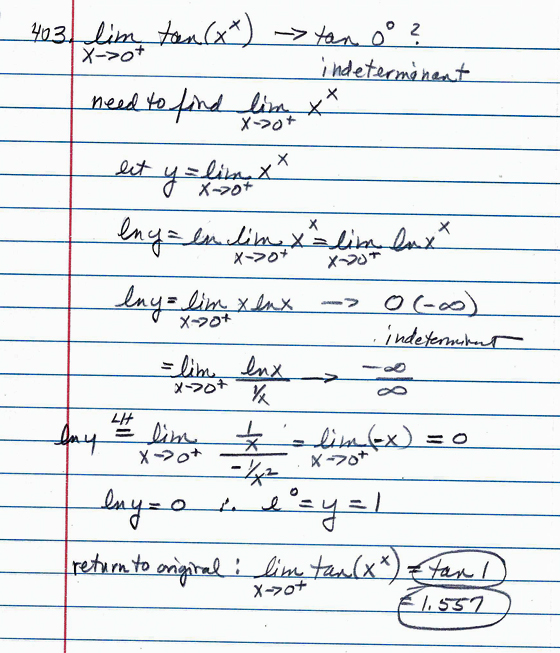 403. lim tan(x^x) → tan 0^0 ?
x→0^+
indeterminant
need to find lim x^x
x→0^+
let y = lim x^x
x→0^+
ln y = ln lim x^x = lim ln x^x
x→0^+ x→0^+
ln y = lim x ln x → 0(-∞)
x→0^+
indeterminant
= lim (ln x)/(1/x) → (-∞)/∞
x→0^+
ln y =^LH lim (1/x)/(-1/x^2) = lim (-x) = 0
x→0^+ x→0^+
ln y = 0 ∴ e^0 = y = 1
return to original : lim tan(x^x) = tan 1
x→0^+
= 1.557